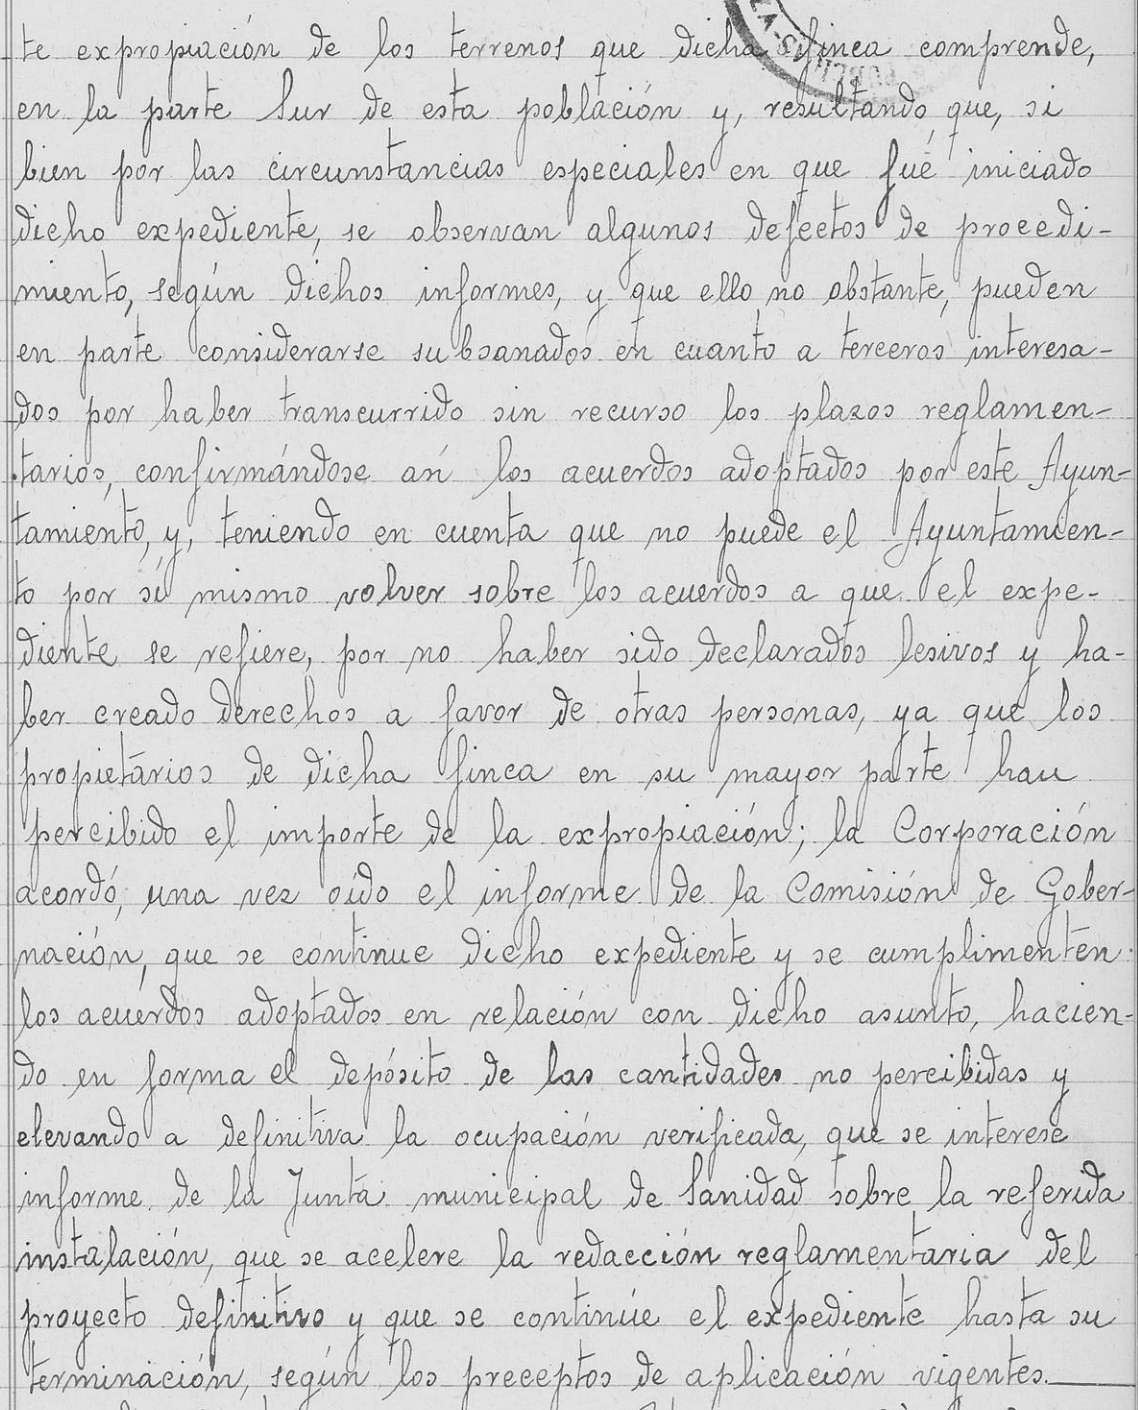 te expropiación de los terrenos que dicha finca comprende,
en la parte Sur de esta población y, resultando que, si
bien por las circunstancias especiales en que fué iniciado
dicho expediente, se observan algunos defectos de procedi-
miento, según dichos informes, y que ello no obstante, pueden
en parte considerarse subsanados en cuanto a terceros interesa-
dos por haber transcurrido sin recurso los plazos reglamen-
tarios, confirmándose así los acuerdos adoptados por este Ayun-
tamiento, y, teniendo en cuenta que no puede el Ayuntamien-
to por sí mismo volver sobre los acuerdos a que el expe-
diente se refiere, por no haber sido declarados lesivos y ha-
ber creado derechos a favor de otras personas, ya que los
propietarios de dicha finca en su mayor parte han
percibido el importe de la expropiación; la Corporación
acordó, una vez oído el informe de la Comisión de Gober-
nación, que se continue dicho expediente y se cumplimenten
los acuerdos adoptados en relación con dicho asunto, hacien-
do en forma el depósito de las cantidades no percibidas y
elevando a definitiva la ocupación verificada, que se interese
informe de la Junta municipal de Sanidad sobre la referida
instalación, que se acelere la redacción reglamentaria del
proyecto definitivo y que se continúe el expediente hasta su
terminación, según los preceptos de aplicación vigentes.